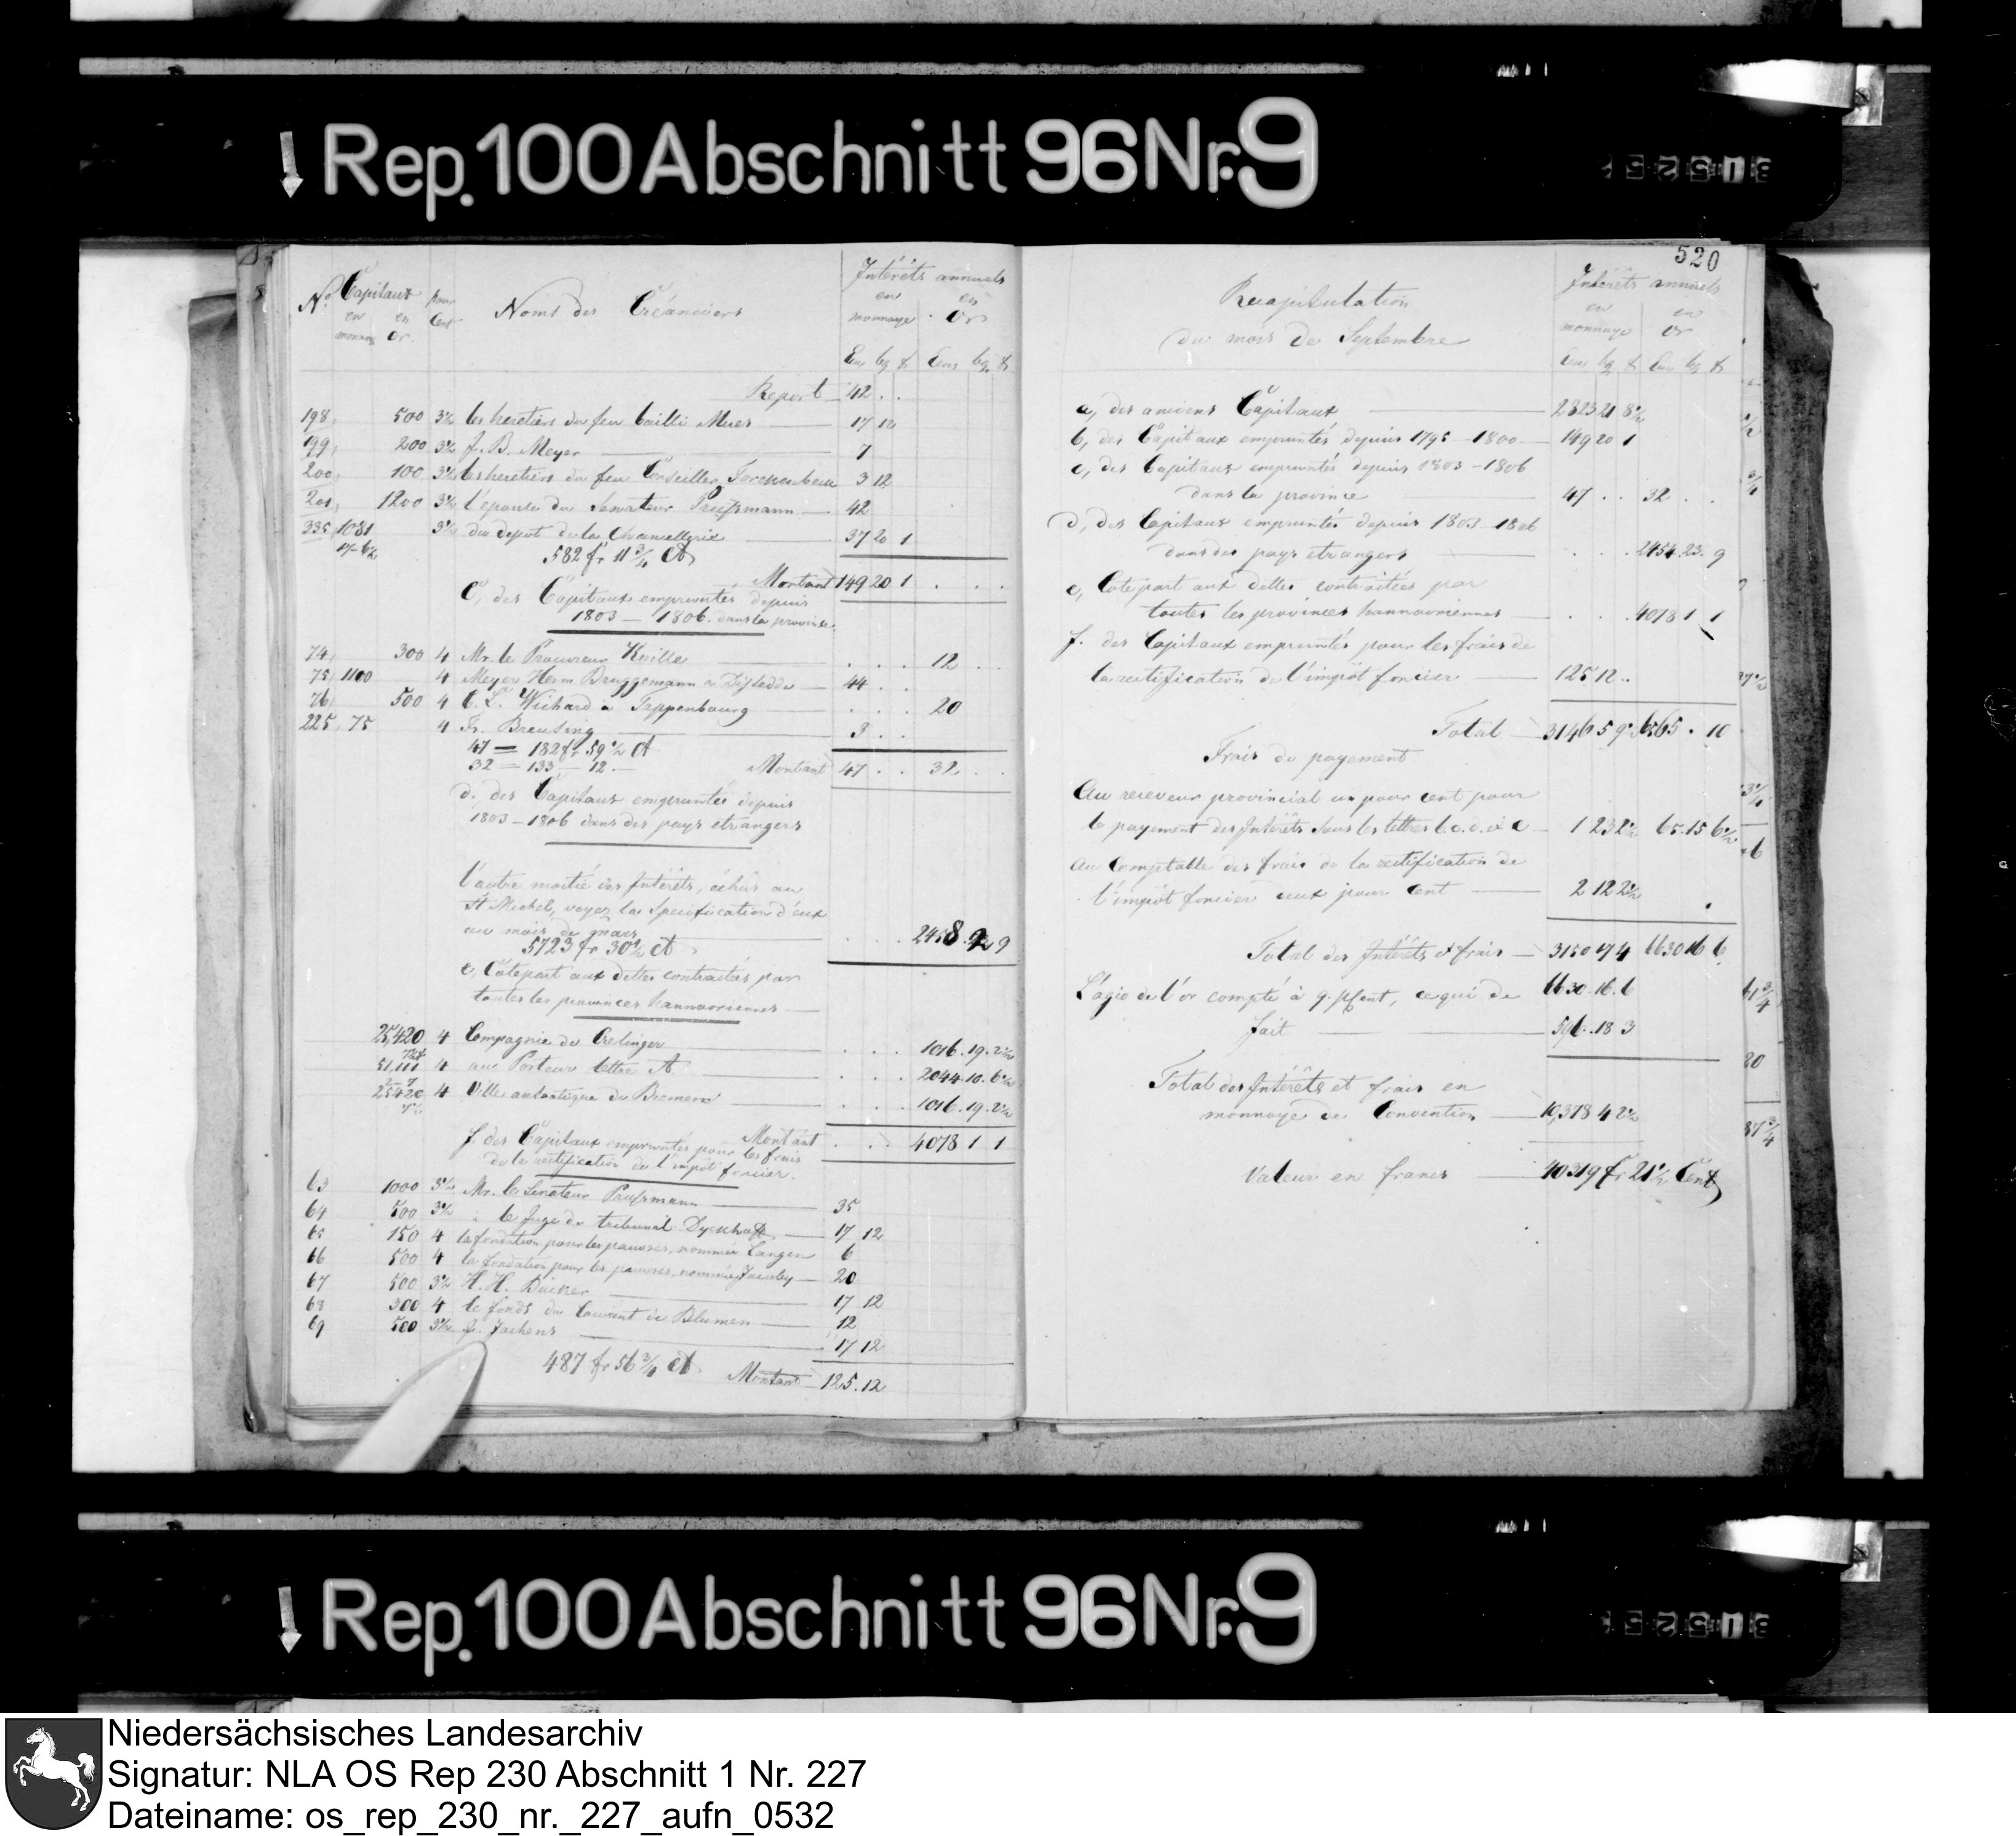 Rep. 100 Abschnitt 96 Nr. 9
No. Capitaux pour Cent Noms des Créanciers Intérêts annuels
en monnaye en Or. en monnaye en Or
Ecus bg d Ecus bg d
Report 42 . .
198, 500 3½ les heretiers du feu bailli Mues 17 12
199, 200 3½ J. B. Meyer 7
200, 100 3½ les heretiers du feu Conseiller 3 12
201, 1200 3½ l'épouse du Senateur Prussmann 42
335, 1081 3½ du depot de la Chancellerie 37 20 1
17-6½ 582 fr 11¾ Ct
Montant 149 20 1 . . .
C, des Capitaux empruntés depuis
1803 — 1806. dans la province.
74, 300 4 Mr. le Procureur Knille . . . 12 . .
75, 1100 4 Meyer Herm Bruggemann a 44 . .
76, 500 4 C. L. Wichard a Tappenbourg . . . 20
225, 75 4 Fr. Breusing 3 . .
47 = 182 fr 59½ Ct
32 = 133 — 12. — Montant 47 . . 32 . .
d. des Capitaux empruntés depuis
1803 — 1806 dans des pays etrangers
l'autre moitié des Intérêts, échus au
St Michel, voyez la Specification d'eux
au mois de mars . . . 2458 9
5723 fr 30½ Ct
e, Cotepart aux dettes contractées par
toutes les provinces hannovriennes
25,420 4 Compagnie de Crelinger . . . 1016. 19. 2½
51,111 4 aux Porteur lettre A . . . 2044. 10. 6½
25420 4 Ville anséatique de Bremen . . . 1016. 19. 2½
Montant . . . 4078 1 1
f. des Capitaux empruntés pour les frais
de la rectification de l'impôt foncier.
63 1000 3½ Mr. le Senateur Prussmann 35
64 500 3½ " le Juge du tribunal Dyckhoff 17 12
65 150 4 la fondation pour les pauvres, nommée Langen 6
66 500 4 la fondation pour les pauvres, nommée Jacoby 20
67 500 3½ H. H. Bücker 17 12
68 300 4 le fonds du Couvent de Blumen 12
69 500 3½ J. Jackens 17 12
487 fr 56¾ Ct Montant 125. 12
520
Recapitulation
du mois de Septembre
Intérêts annuels
en monnaye en or
Ecus bg d Ecus bg d
a, des anciens Capitaux 2823 21 8½
b, des Capitaux empruntés depuis 1795 — 1800 149 20 1
c, des Capitaux empruntés depuis 1803 — 1806
dans la province 47 . . 32 . .
d, des Capitaux empruntés depuis 1803 — 1806
dans des pays etrangers . . . 2454. 23. 9
e, Cotepart aux dettes contractées par
toutes les provinces hannovriennes . . . 4078 1 1
f. des Capitaux empruntés pour les frais de
la rectification de l'impôt foncier 125 12 . .
Total 3146 5 9½ 6565 . 10
Frais du payement
Au receveur provincial un pour cent pour
le payement des Intérêts sous les lettres b. c. d. et e 1 23 2½ 65. 15 6½
au Comptable des frais de la rectification de
l'impôt foncier deux pour Cent 2 12 2½
Total des Intérêts & frais 3150 17 4 6630 16 6
L'agio de l'or compté à 9. pCent, ce qui de 6630. 16. 6
fait 596. 18 3
Total des Intérêts et frais en
monnaye de Convention 10,378 4 2½
Valeur en francs 40319 fr 21½ Cent
Rep. 100 Abschnitt 96 Nr. 9
Niedersächsisches Landesarchiv
Signatur: NLA OS Rep 230 Abschnitt 1 Nr. 227
Dateiname: os_rep_230_nr._227_aufn_0532